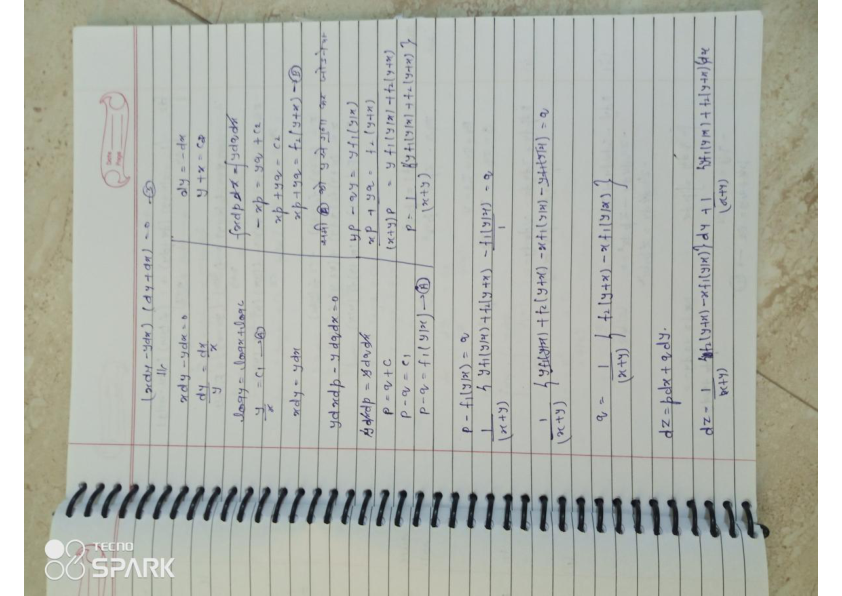 (xdy - ydx) (dy + dx) = 0 - ③
xdy - ydx = 0
dy/y = dx/x
logy = logx + logc
y/x = c1
xdy = ydx
ydxdp - ydqdx = 0
ydxdp = ydqdx
p = q + c
p - q = c1
p - q = f1(y/x) — Ⓐ
dy = -dx
y + x = c2
∫xdpdx = ∫ydqdx
- xp = yq + c2
xp + yq = c2
xp + yq = f2(y+x) - Ⓑ
समी Ⓐ को y से गुणा
yp - qy = y f1(y/x)
xp + yq = f2(y+x)
(x+y)p = y f1(y/x) + f2(y+x)
p = 1/(x+y) {y f1(y/x) + f2(y+x)}
p - f1(y/x) = q
1/(x+y) {y f1(y/x) + f2(y+x)} - f1(y/x) = q
1/(x+y) {y f1(y/x) + f2(y+x) - x f1(y/x) - y f1(y/x)} = q
q = 1/(x+y) {f2(y+x) - x f1(y/x)}
dz = pdx + q dy.
dz = 1/(x+y) {f2(y+x) - x f1(y/x)} dy + 1/(x+y) {y f1(y/x) + f2(y+x)} dx
TECNO
SPARK